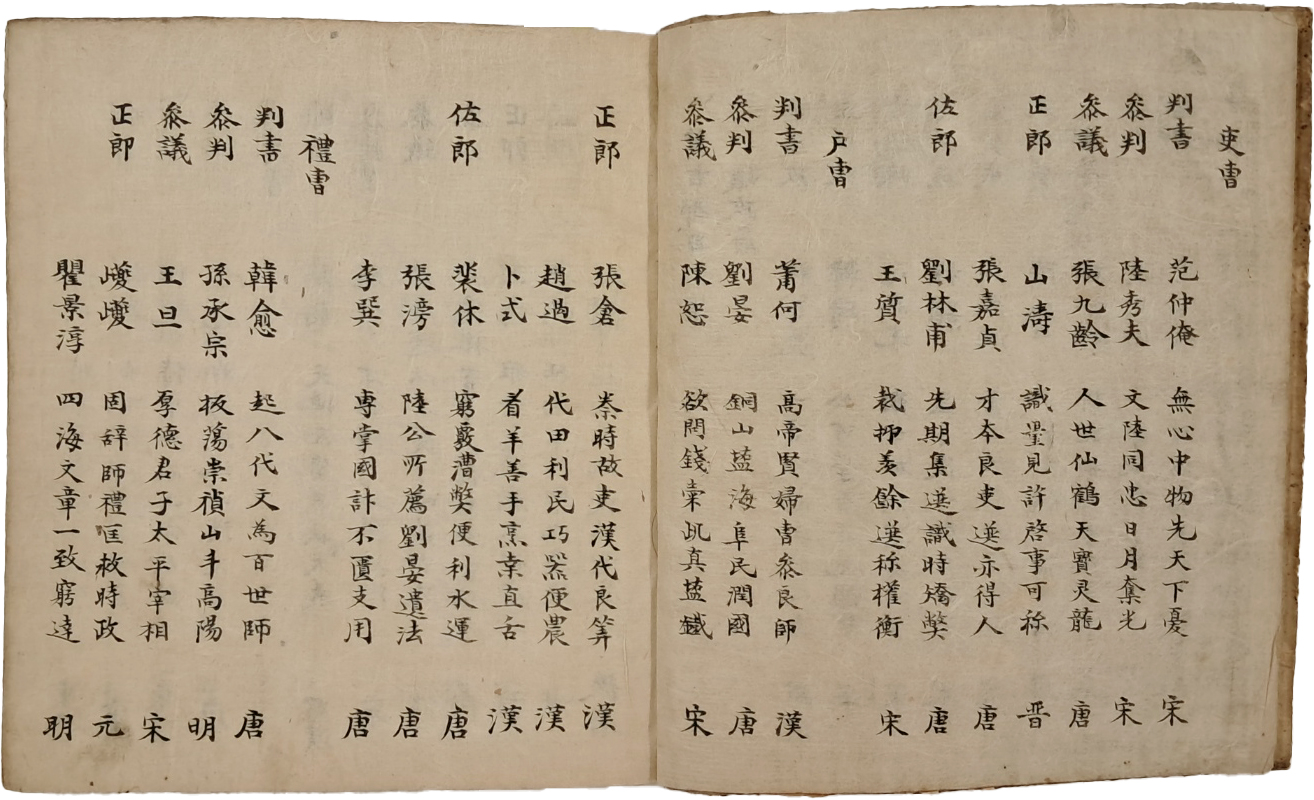 吏曺
判書 范仲俺 無心中物先天下憂 宋
叅判 陸秀夫 文陸同忠日月奪光 宋
叅議 張九齡 人世仙鶴天寶灵龍 唐
正郎 山濤 識量見許啓事可称 晋
張嘉貞 才本良吏選亦得人 唐
佐郎 劉林甫 先期集選識時矯弊 唐
王質 裁抑羡餘選称權衡 宋
戶曺
判書 莆何 高帝賢婦曺叅良師 漢
叅判 劉晏 銅山盐海阜民潤國 唐
叅議 陳恕 欲問錢粟此真盐鐵 宋
正郎 張倉 秦時故吏漢代良筭 漢
趙過 代田利民巧器便農 漢
卜式 看羊善手烹桒直舌 漢
佐郎 裴休 窮覈漕弊便利水運 唐
張滂 陸公所薦劉晏遺法 唐
李巽 專掌國計不匱支用 唐
禮曺
判書 韓愈 起八代文為百世師 唐
叅判 孫承宗 板蕩崇禎山斗高陽 明
叅議 王旦 厚德君子太平宰相 宋
正郎 巙巙 固辞師禮匡救時政 元
瞿景淳 四海文章一致窮達 明